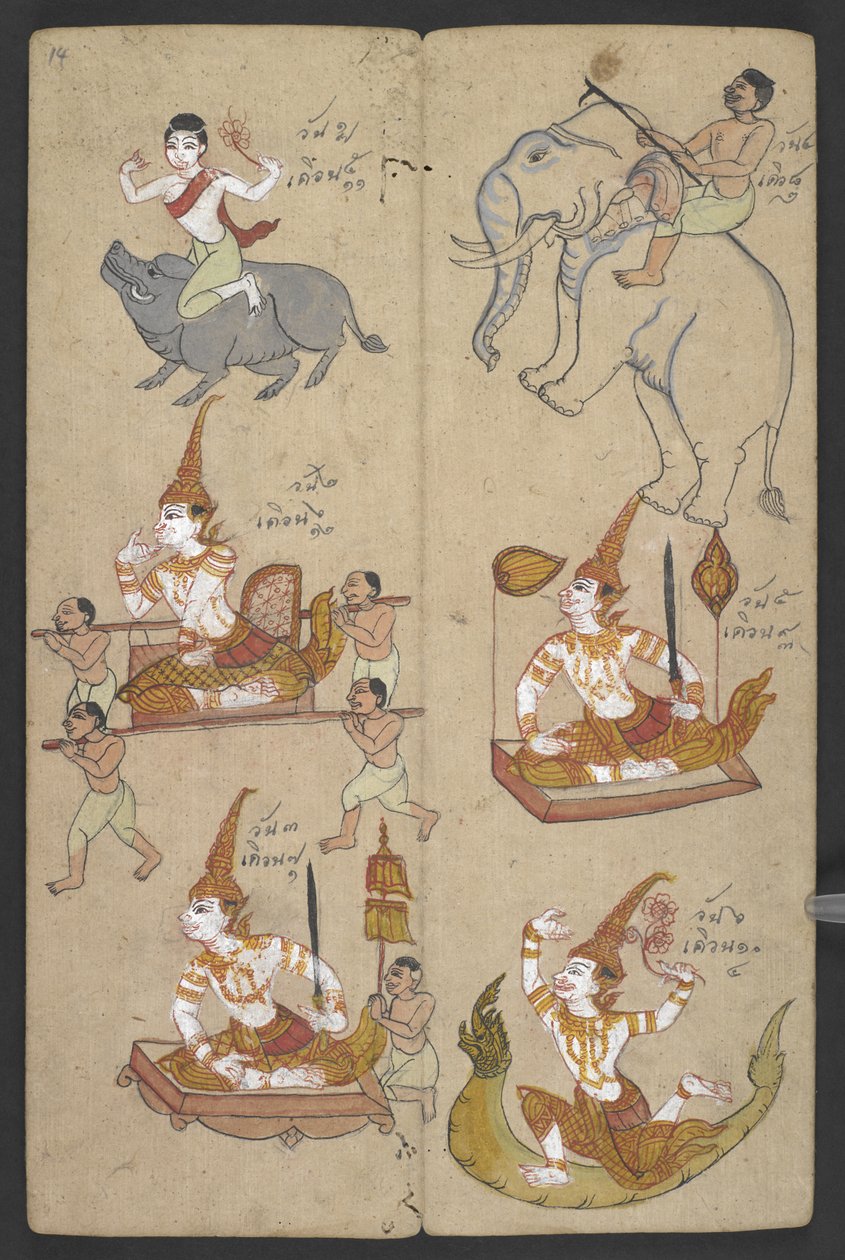 14
วัน ๑
เดือน ๕
๑๑
วัน ๒
เดือน ๖
๑๒
วัน ๓
เดือน ๗
๑
วัน ๔
เดือ ๘
๒
วัน ๕
เดือน ๙
๓
วัน ๖
เดือน ๑๐
๔